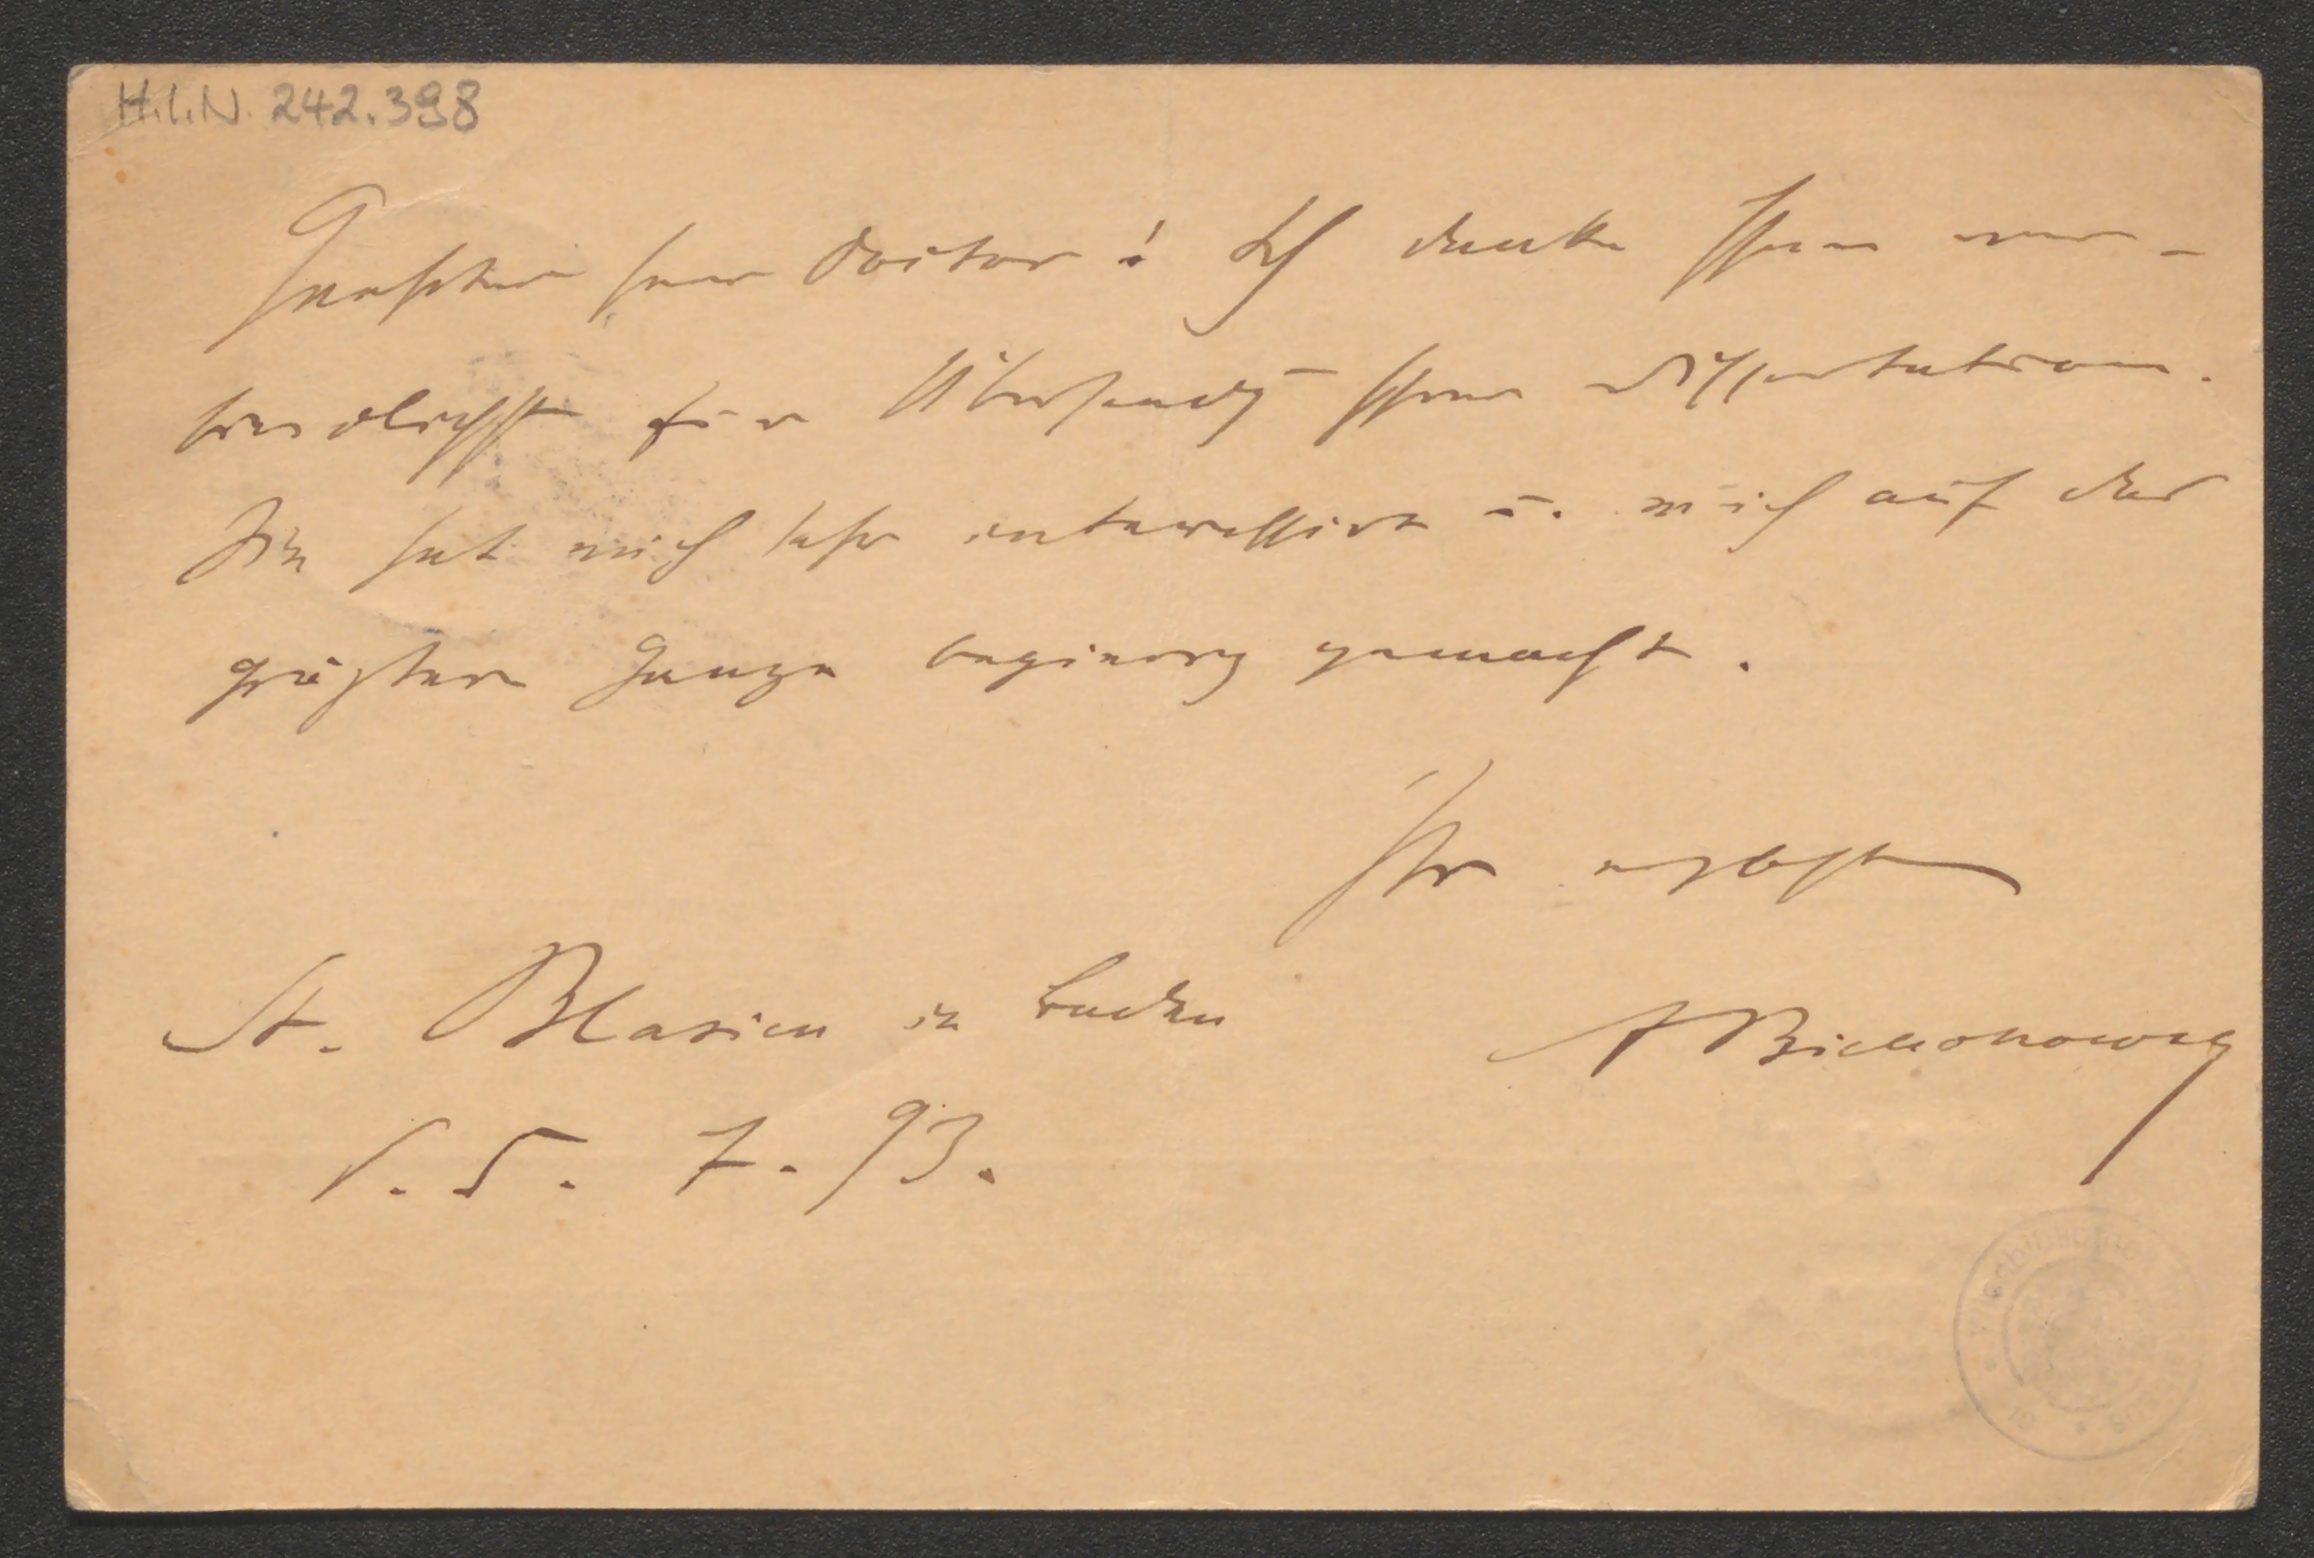 H.I.N. 242.398
Geehrter Herr Doctor! Ich danke Ihnen ver-
bindlichst für Übersendg Ihrer Dissertation.
Sie hat mich sehr interessirt u. mich auf das
größere Ganze begierig gemacht.
Ihr ergbst
St. Blasien in Baden
ABielschowsky
15. 7. 93.